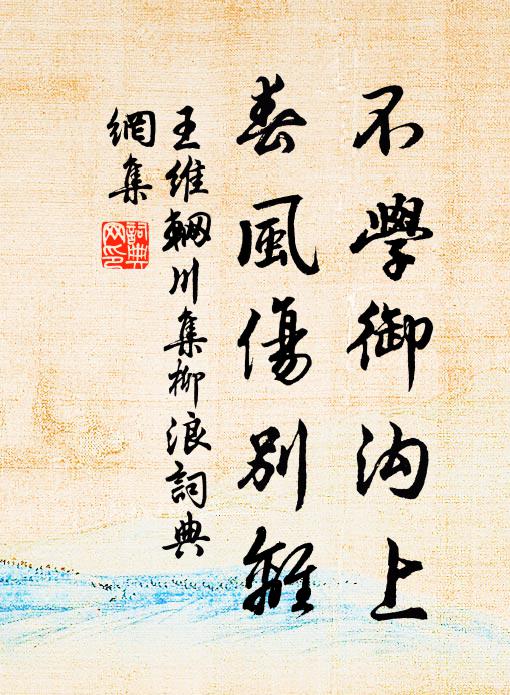 不學御沟上
春風傷別離
王維輞川集柳浪詞典
網集
詞典
网印